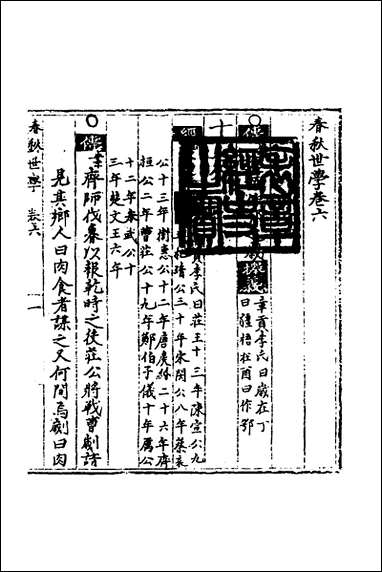 春秋世學卷六
傳
探義
章貢李氏曰歲在丁
曰疆梧在酉曰作鄂
十
經
貢李氏曰莊王十三年陳宣公九
年杞靖公三十年宋閔公八年蔡哀
公十三年衛惠公十二年唐侯緡二十六年齊
桓公二年曹莊公十九年鄭伯子儀十年厲公
十二年秦武公十
三年楚文王六年
傳 齊師伐魯以報乾時之役莊公將戰曹劌請
見其鄉人曰肉食者謀之又何間焉劌曰肉
春秋世學 卷六 一